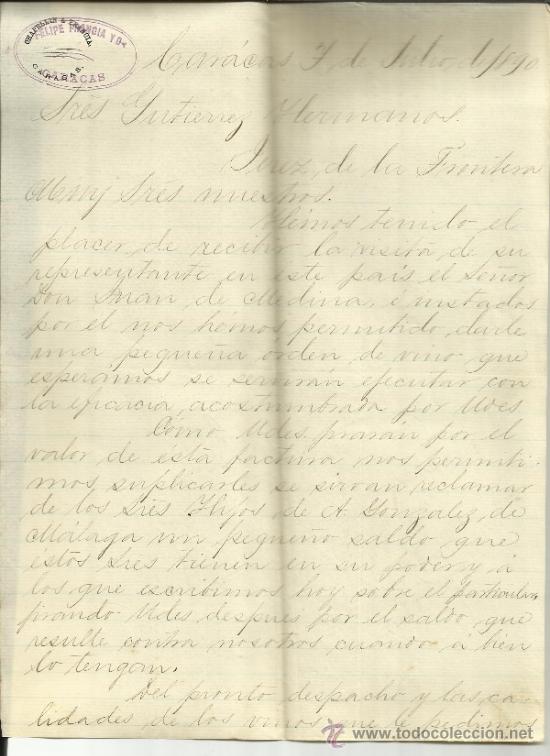 CHAPELLIN & FRANCIA
FELIPE FRANCIA Y Ca
CARACAS
CARACAS
Carácas 7, de Julio, de 1890
Sres Gutierrez Hermanos.
Jerez, de la Frontera
Muy Sres nuestros.
Hémos tenido el
placer, de recibir la visita de su
representante en este país el Señor
Don Juan, de Medina, é instados
por él nos hémos permitido, darle
una pequeña orden, de vino, que
esperámos se servirán ejecutar con
la eficacia, acostumbrada por Udes
Como Udes, girarán por el
valor de esta factura nos permiti-
mos, suplicarles se sirvan reclamar
de los Sres Hijos, de A. Gonzalez, de
Málaga un pequeño saldo que
éstos Sres tienen en su poder y á
los que escribimos hoy sobre el particular,
girando Udes, despues por el saldo, que
resulte contra nosotros cuando á bien
lo tengan.
Del pronto despacho y las ca-
lidades de los vinos que le pedimos
todocoleccion.net